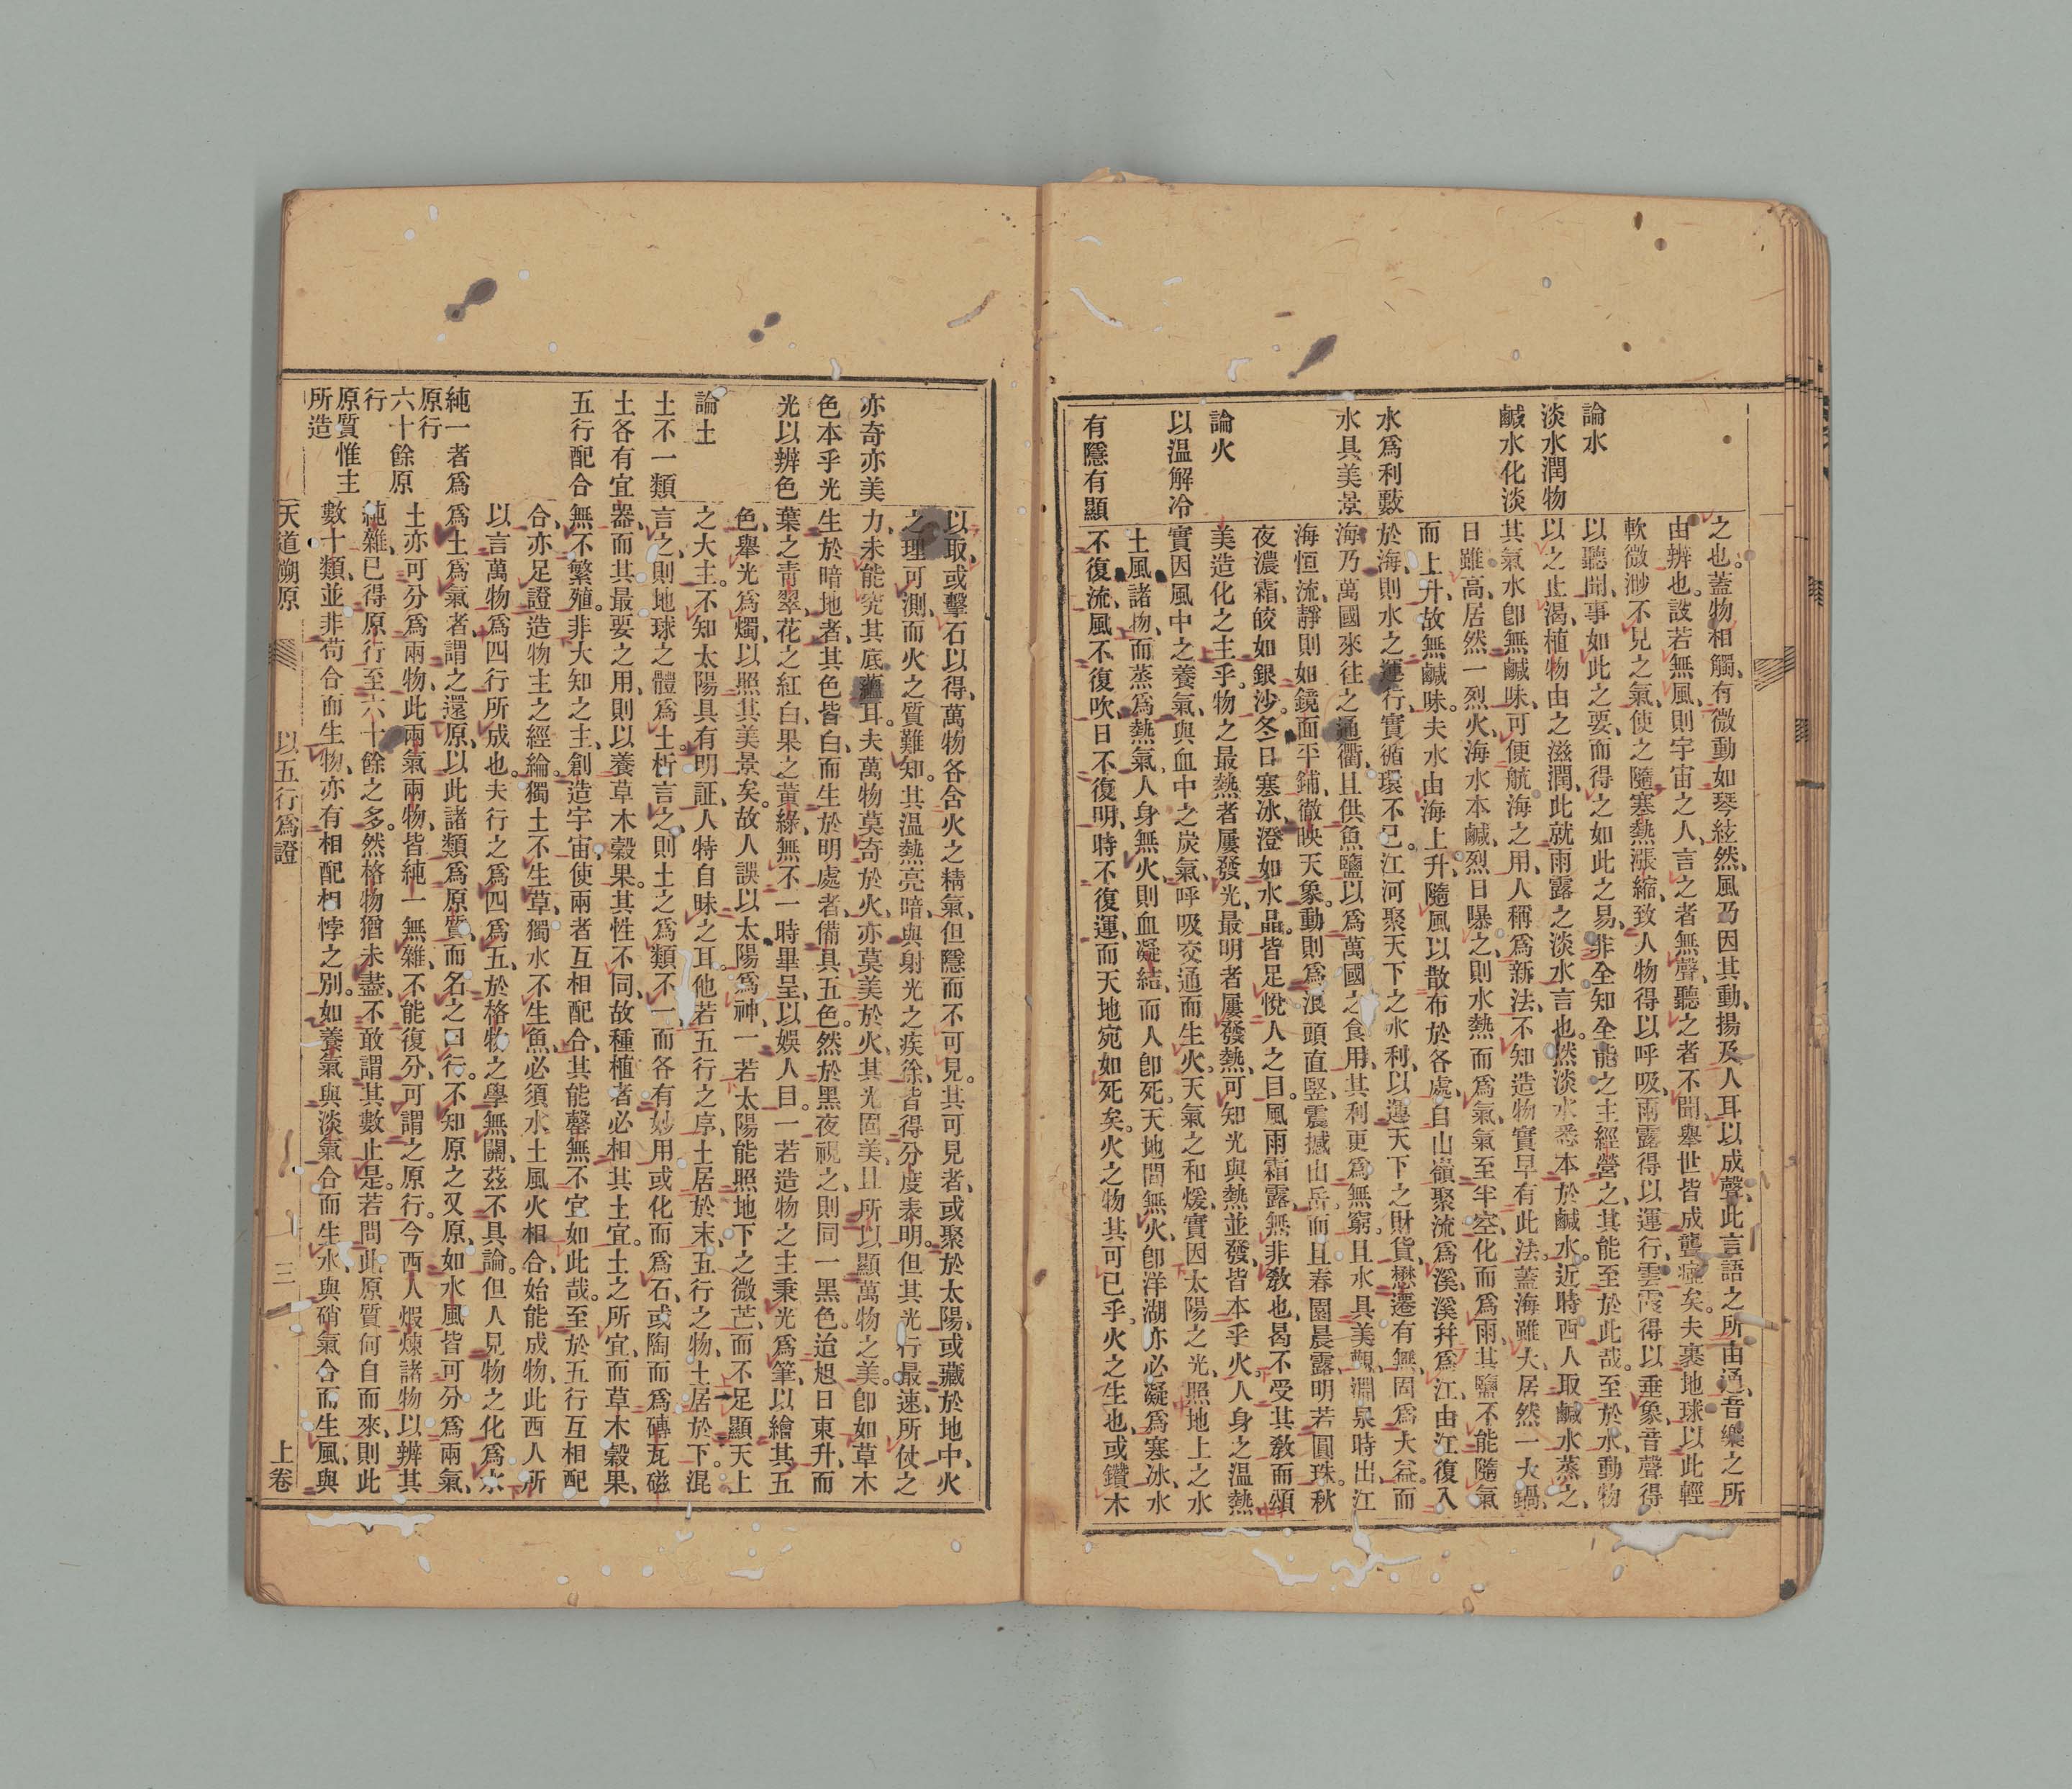 論水
淡水潤物
鹹水化淡
水爲利藪
水具美景
論火
以温解冷
有隱有顯
之也。蓋物相觸、有微動如琴絃然、風乃因其動、揚及人耳以成聲、此言語之所由通、音樂之所
由辨也。設若無風、則宇宙之人、言之者無聲、聽之者不聞、舉世皆成聾瘂矣。夫裹地球以此輕
軟微渺不見之氣、使之隨寒熱漲縮、致人物得以呼吸、雨露得以運行、雲霞得以垂象、音聲得
以聽聞、事如此之要、而得之如此之易、非全知全能之主經營之、其能至於此哉。至於水、動物
以之止渴、植物由之滋潤、此就雨露之淡水言也。然淡水悉本於鹹水。近時西人取鹹水蒸之、
其氣水卽無鹹味、可便航海之用、人稱爲新法、不知造物實早有此法。蓋海雖大、居然一大鍋、
日雖高、居然一烈火、海水本鹹、烈日曝之、則水熱而爲氣、氣至半空、化而爲雨、其鹽不能隨氣
而上升、故無鹹味。夫水由海上升、隨風以散布於各處、自山嶺聚流爲溪、溪幷爲江、由江復入
於海、則水之運行、實循環不已。江河聚天下之水利、以運天下之財貨、懋遷有無、固爲大益。而
海乃萬國來往之通衢、且供魚鹽以爲萬國之食用、其利更爲無窮。且水具美觀、淵泉時出、江
海恒流、靜則如鏡面平鋪、徹映天象。動則爲浪頭直竪、震撼山岳。而且春園晨露、明若圓珠。秋
夜濃霜、皎如銀沙。冬日塞冰、澄如水晶。皆足悅人之目。風雨霜露、無非敎也、曷不受其敎而頌
美造化之主乎。物之最熱者屢發光、最明者屢發熱、可知光與熱並發、皆本乎火。人身之温熱、
實因風中之養氣、與血中之炭氣、呼吸交通而生火。天氣之和煖、實因太陽之光、照地上之水
土風諸物、而蒸爲熱氣、人身無火、則血凝結、而人卽死。天地間無火、卽洋湖亦必凝爲寒冰、水
不復流、風不復吹、日不復明、時不復運、而天地宛如死矣。火之物其可已乎。火之生也、或鑽木
亦奇亦美
色本乎光
光以辨色
論土
土不一類
土各有宜
五行配合
純一者爲
原行
六十餘原
行
原質惟主
所造
以取、或擊石以得、萬物各含火之精氣、但隱而不可見。其可見者、或聚於太陽、或藏於地中、火
之理可測、而火之質難知。其温熱亮暗、與射光之疾徐、皆得分度表明。但其光行最速、所仗之
力、未能究其底蘊耳。夫萬物莫奇於火、亦莫美於火、其光固美、且所以顯萬物之美。卽如草木
生於暗地者、其色皆白、而生於明處者、備具五色。然於黑夜視之、則同一黑色。迨旭日東升、而
葉之靑翠、花之紅白、果之黃綠、無不一時畢呈、以娛人目。一若造物之主秉光爲筆、以繪其五
色、舉光爲燭、以照其美景矣。故人誤以太陽爲神、一若太陽能照地下之微芒、而不足顯天上
之大主。不知太陽具有明証、人特自昧之耳。他若五行之序、土居於末、五行之物、土居於下。混
言之、則地球之體爲土。析言之、則土之爲類不一、而各有妙用、或化而爲石、或陶而爲磚瓦磁
器、而其最要之用、則以養草木穀果。其性不同、故種植者必相其土宜。土之所宜、而草木穀果、
無不繁殖。非大知之主、創造宇宙、使兩者互相配合、其能罄無不宜如此哉。至於五行互相配
合、亦足證造物主之經綸。獨土不生草、獨水不生魚、必須水土風火相合、始能成物、此西人所
以言萬物爲四行所成也。夫行之爲四爲五、於格物之學無關、茲不具論。但人見物之化爲水
爲土爲氣者、謂之還原、以此諸類爲原質、而名之曰行。不知原之又原、如水風皆可分爲兩氣、
土亦可分爲兩物、此兩氣兩物、皆純一無雜、不能復分、可謂之原行。今西人煆煉諸物、以辨其
純雜、已得原行至六十餘之多。然格物猶未盡、不敢謂其數止是。若問此原質何自而來、則此
數十類、並非苟合而生物、亦有相配相悖之別。如養氣與淡氣合而生水、與硝氣合而生風、與
天道溯原
以五行爲證
三
上卷